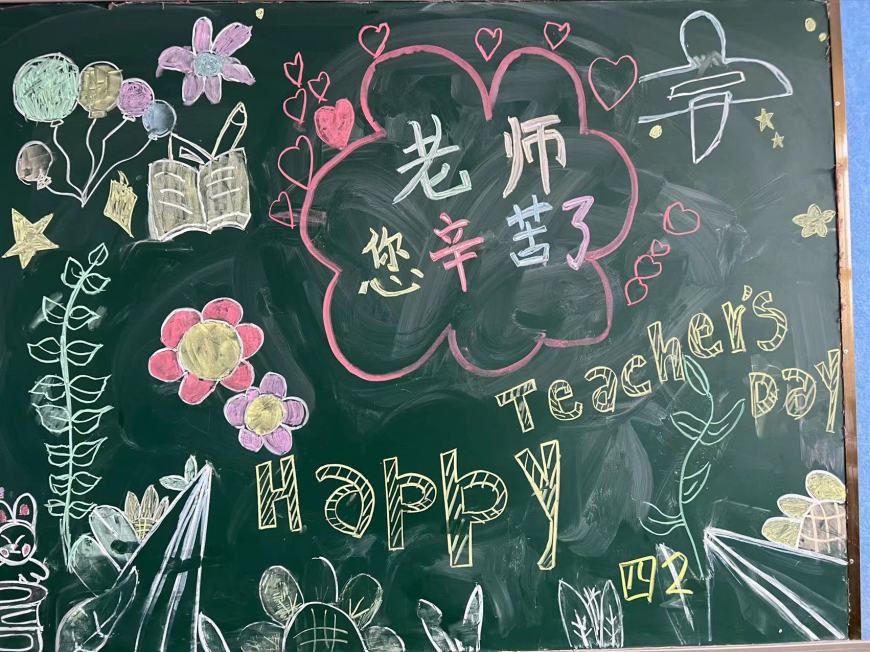 老师
您辛苦了
Teacher's
Day
Happy
四2